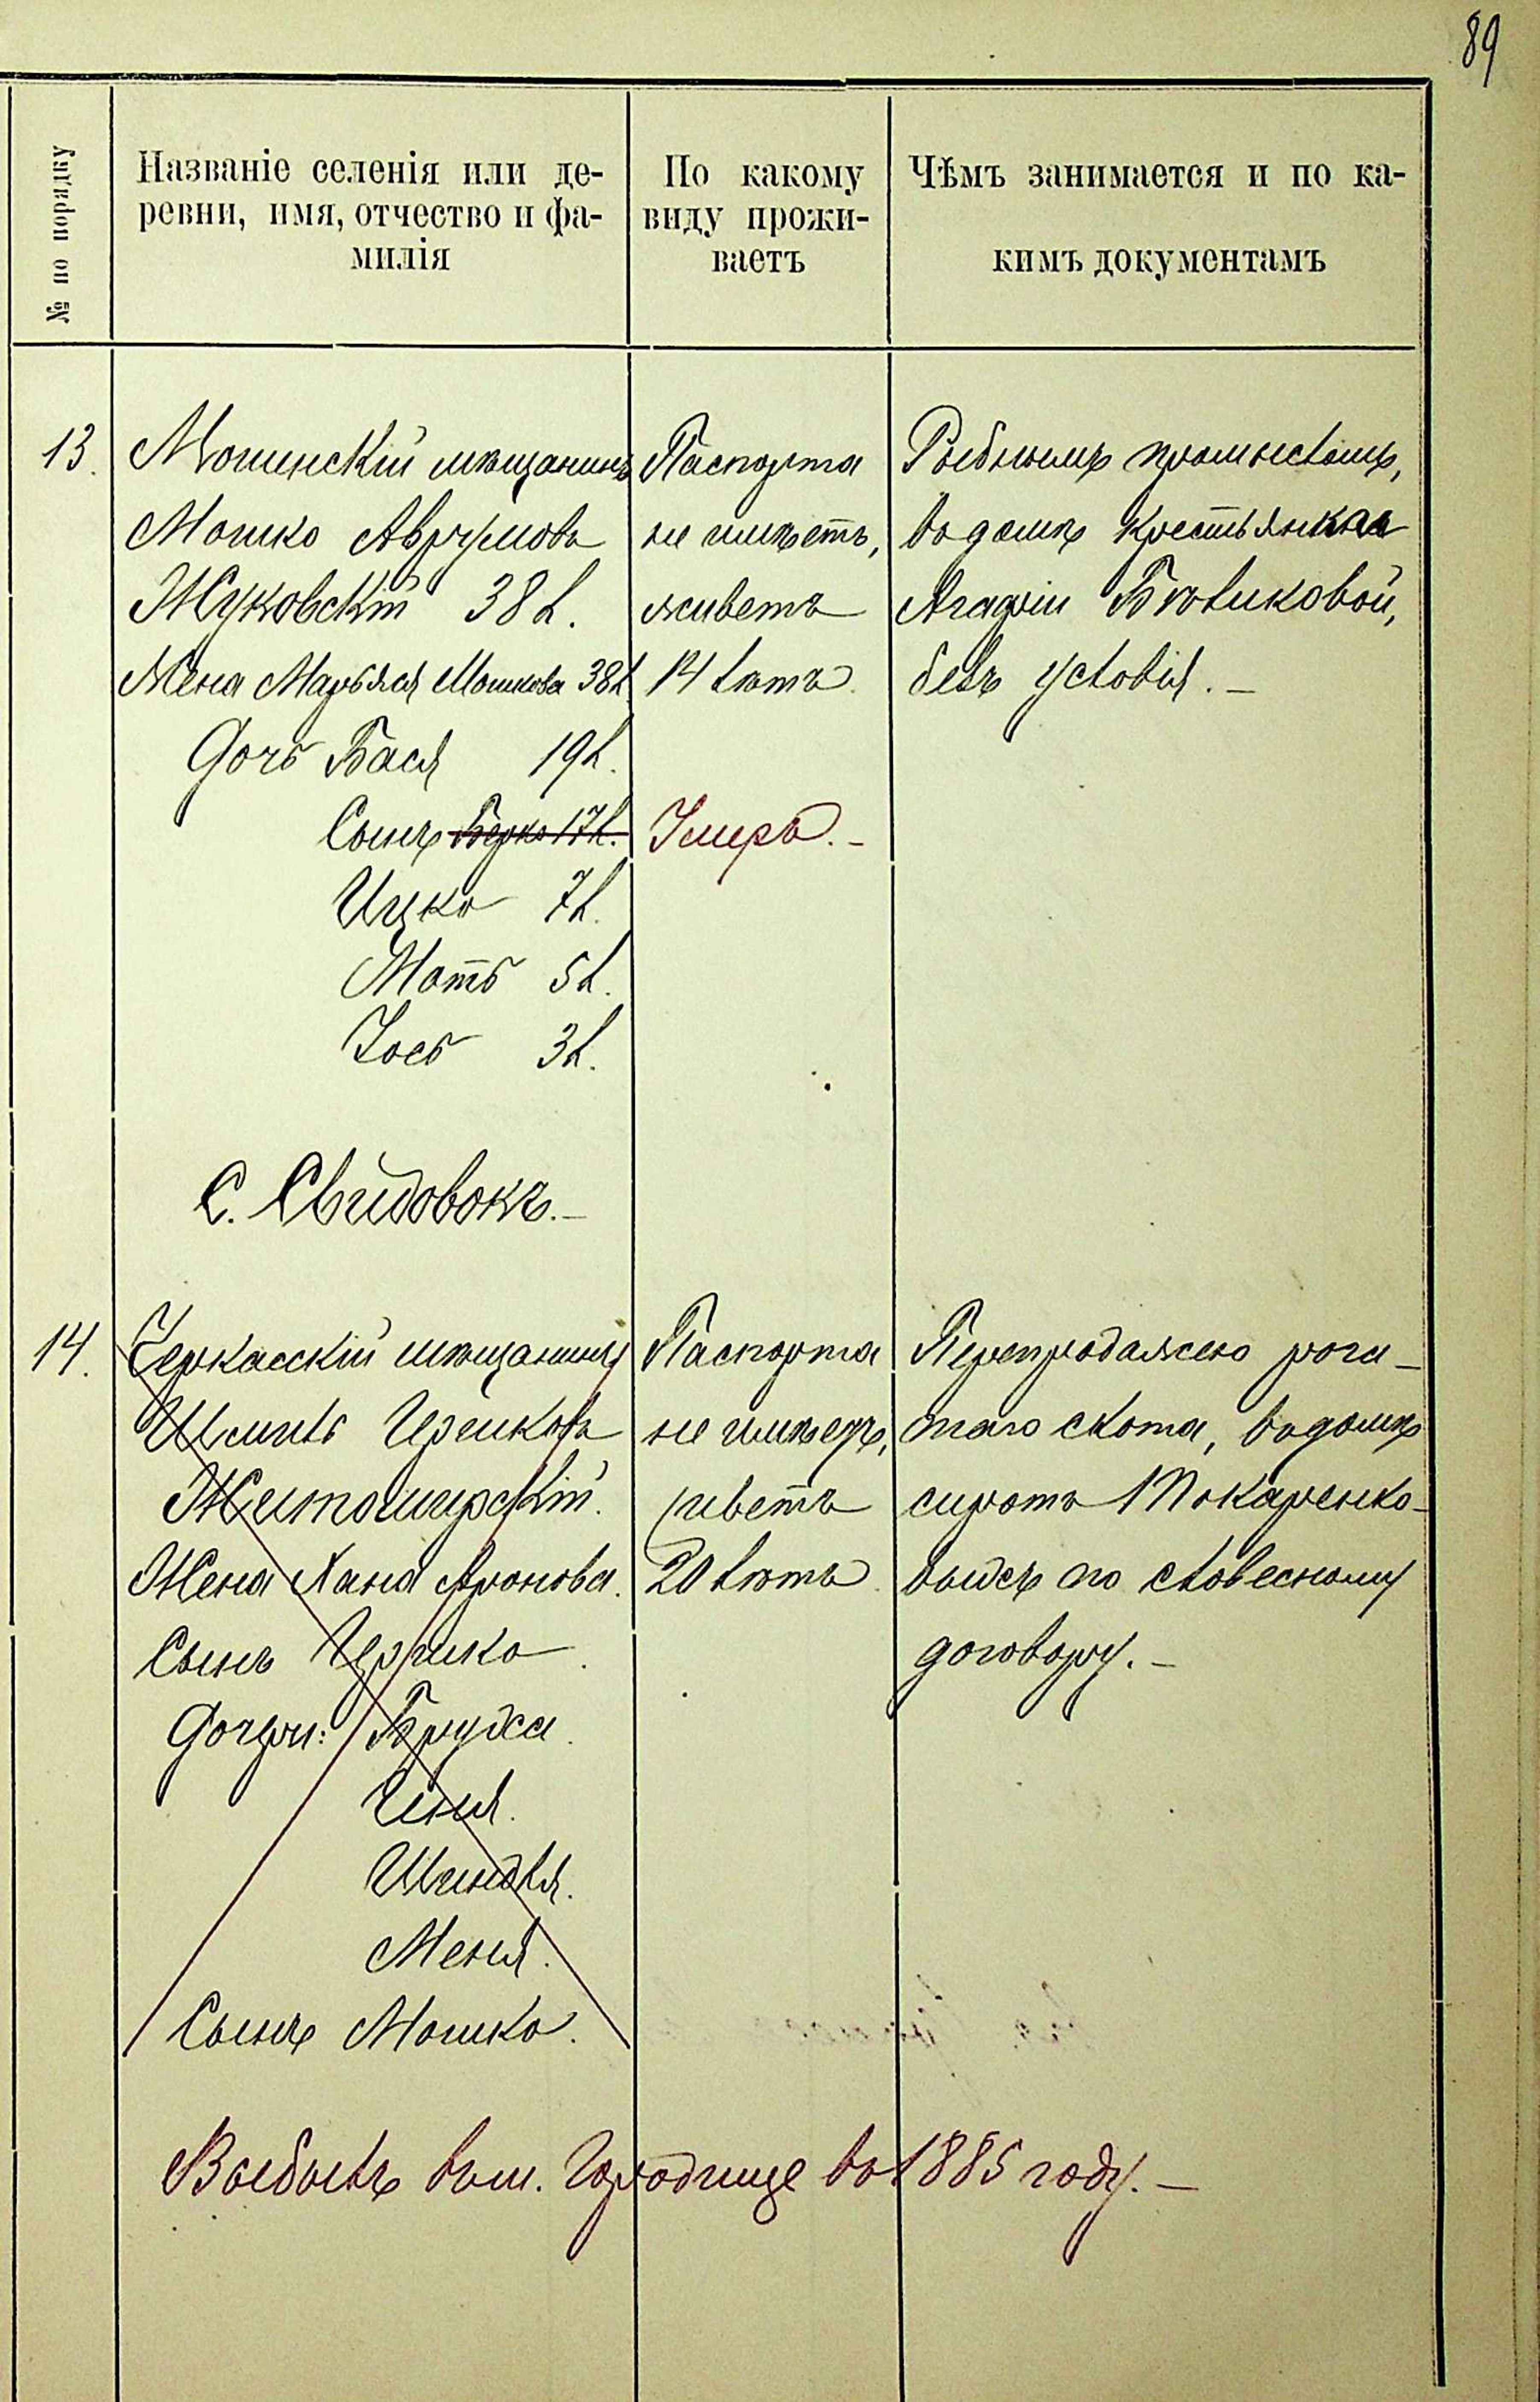 89
№ по порядку
Названіе селенія или де-
ревни, имя, отчество и фа-
милія
По какому
виду прожи-
ваетъ
Чѣмъ занимается и по ка-
кимъ документамъ
13.
Мошенскій мѣщанинъ
Мошко Аврумовъ
Жуковскій 38 л.
Жена Марьяся Мошкова 38 л.
Дочь Бася 19 л.
Сынъ Берко 17 л.
Ицко 7 л.
Моть 5 л.
Іось 3 л.
Паспорта
не имѣетъ,
живетъ
14 лѣтъ.
Умеръ.-
Рыбнымъ промысломъ,
въ домѣ крестьянки
Агафіи
безъ условія.-
С. Свидовокъ.-
14.
Черкасскій мѣщанинъ
Шмиль Цериковъ
Житомирскій.
Жена Хана Аронова.
Сынъ
Дочери:
Ценя.
Шиндля.
Меня.
Сынъ Мошко.
Паспорта
не имѣетъ,
живетъ
20 лѣтъ.
Перепродажею рога-
таго скота, въ домѣ
сиротъ Токаренко-
выхъ по словесному
договору.-
Выбылъ въ м. Городище въ 1885 году.-